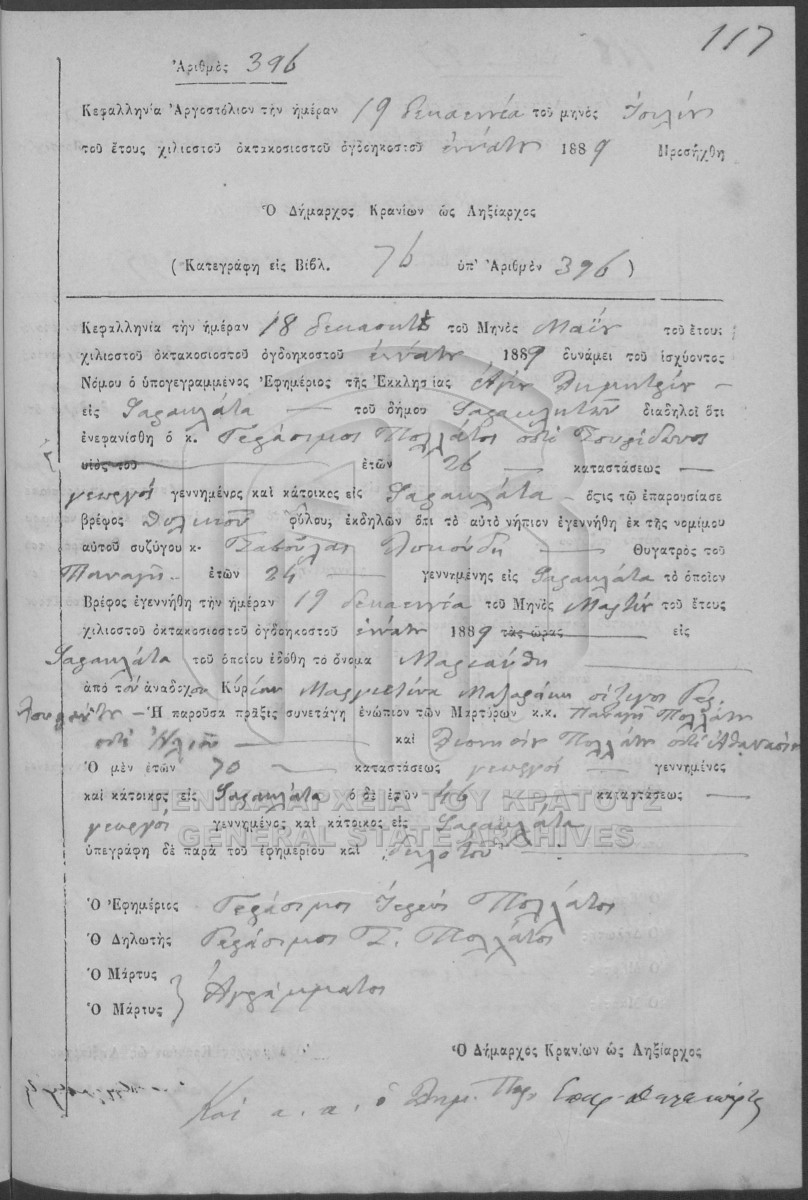 117
Ἀριθμὸς 396
Κεφαλληνία Ἀργοστόλιον τὴν ἡμέραν 19 δεκαεννέα τοῦ μηνὸς Ἰουλίου
τοῦ ἔτους χιλιοστοῦ ὀκτακοσιοστοῦ ὀγδοηκοστοῦ ἐννάτου 1889 Προσήχθη
Ὁ Δήμαρχος Κρανίων ὡς Ληξίαρχος
(Κατεγράφη εἰς Βίβλ. 76 ὑπ' Ἀριθμὸν 396)
Κεφαλληνία τὴν ἡμέραν 18 δεκαοκτὼ τοῦ Μηνὸς Μαΐου τοῦ ἔτους
χιλιοστοῦ ὀκτακοσιοστοῦ ὀγδοηκοστοῦ ἐννάτου 1889 δυνάμει τοῦ ἰσχύοντος
Νόμου ὁ ὑπογεγραμμένος Ἐφημέριος τῆς Ἐκκλησίας Ἁγίου Δημητρίου
εἰς Φαρακλάτα τοῦ δήμου διαδηλοῖ ὅτι
ἐνεφανίσθη ὁ κ. Γεράσιμος Πολλάτος ποτὲ Σπυρίδωνος
υἱὸς τοῦ ἐτῶν 26 καταστάσεως
γεωργὸς γεννημένος καὶ κάτοικος εἰς Φαρακλάτα ὅςτις τῷ ἐπαρουσίασε
βρέφος θυλικοῦ φύλου, ἐκδηλῶν ὅτι τὸ αὐτὸ νήπιον ἐγεννήθη ἐκ τῆς νομίμου
αὐτοῦ συζύγου κ. Θυγατρὸς τοῦ
Παναγῆ ἐτῶν 24 γεννημένης εἰς Φαρακλάτα τὸ ὁποῖον
Βρέφος ἐγεννήθη τὴν ἡμέραν 19 δεκαεννέα τοῦ Μηνὸς Μαρτίου τοῦ ἔτους
χιλιοστοῦ ὀκτακοσιοστοῦ ὀγδοηκοστοῦ ἐννάτου 1889 τὰς ὥρας εἰς
Φαρακλάτα τοῦ ὁποίου ἐδόθη τὸ ὄνομα Μαριάνθη
ἀπὸ τὸν ἀνάδοχον Κύριον σύζυγος Γερ.
Ἡ παροῦσα πρᾶξις συνετάγη ἐνώπιον τῶν Μαρτύρων κ.κ. Παναγῆ Πολλάτου
ποτὲ Ἠλία καὶ Διονυσίου Πολλάτου ποτὲ Ἀθανασίου
Ὁ μὲν ἐτῶν 70 καταστάσεως γεωργὸς γεννημένος
καὶ κάτοικος εἰς Φαρακλάτα ὁ δὲ ἐτῶν 46 καταστάσεως
γεωργὸς γεννημένος καὶ κάτοικος εἰς Φαρακλάτα
ὑπεγράφη δὲ παρὰ τοῦ ἐφημερίου καὶ δηλότου
ΓΕΝΙΚΑ ΑΡΧΕΙΑ ΤΟΥ ΚΡΑΤΟΥΣ
GENERAL STATE ARCHIVES
Ὁ Ἐφημέριος Γεράσιμος Ἱερεὺς Πολλάτος
Ὁ Δηλωτὴς Γεράσιμος Σ. Πολλάτος
Ὁ Μάρτυς
Ὁ Μάρτυς } Ἀγράμματοι
Ὁ Δήμαρχος Κρανίων ὡς Ληξίαρχος
Καὶ α. α. ὁ Δημ. Παρ.